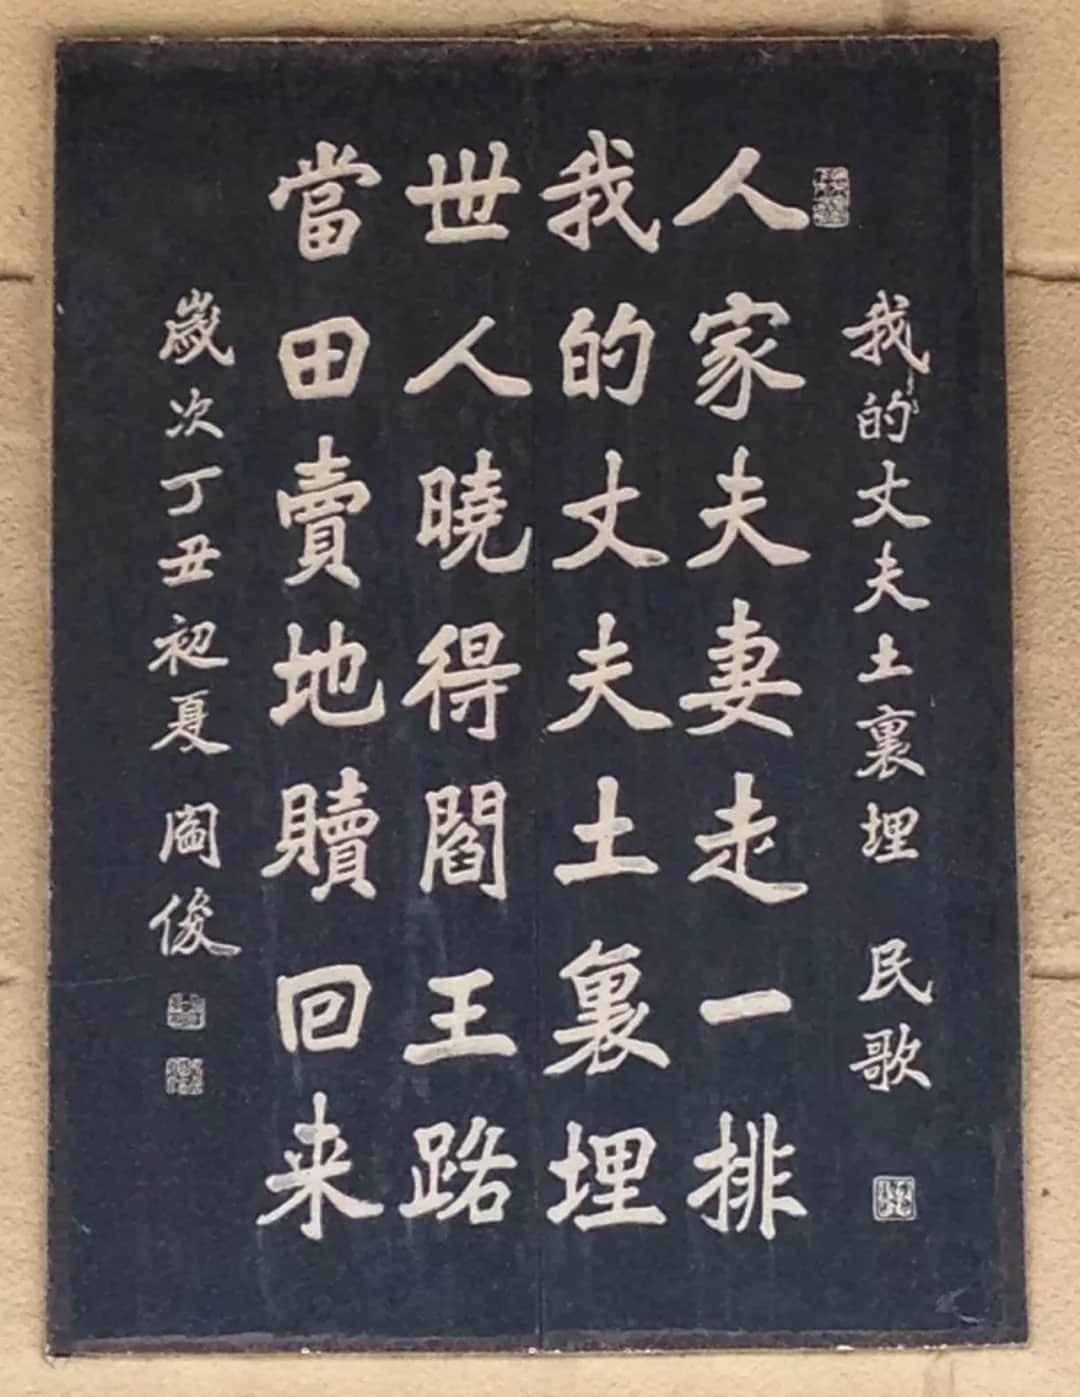 我的丈夫土裏埋 民歌
人家夫妻走一排
我的丈夫土裏埋
世人曉得閻王路
當田賣地贖回来
歲次丁丑初夏 闔俊